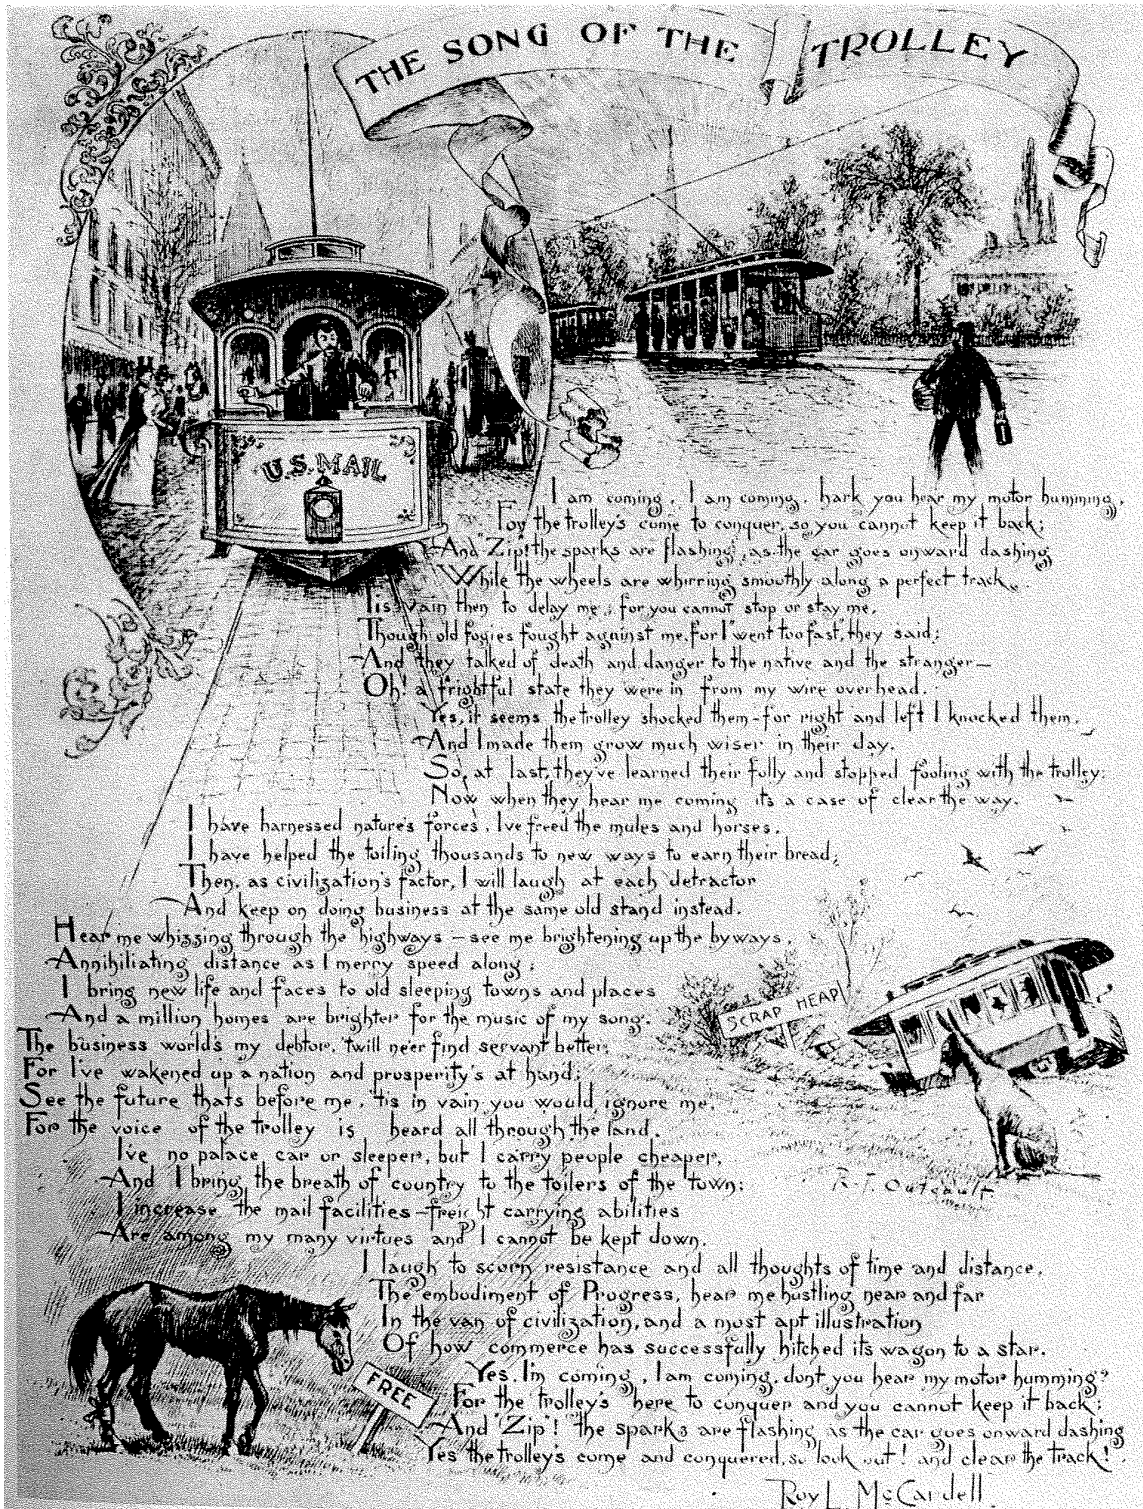 THE SONG OF THE TROLLEY
U.S. MAIL
I am coming, I am coming, hark you hear my motor humming,
For the trolley's come to conquer, so you cannot keep it back;
And "Zip"! the sparks are flashing, as the car goes onward dashing
While the wheels are whirring smoothly along a perfect track.
'Tis vain then to delay me, for you cannot stop or stay me,
Though old fogies fought against me, for I "went too fast", they said;
And they talked of death and danger to the native and the stranger—
Oh! a frightful state they were in from my wire overhead.
Yes, it seems the trolley shocked them—for right and left I knocked them,
And I made them grow much wiser in their day.
So, at last, they've learned their folly and stopped fooling with the trolley;
Now when they hear me coming its a case of clear the way.
I have harnessed nature's forces, I've freed the mules and horses,
I have helped the toiling thousands to new ways to earn their bread;
Then, as civilization's factor, I will laugh at each detractor
And keep on doing business at the same old stand instead.
Hear me whizzing through the highways — see me brightening up the byways,
Annihiliating distance as I merry speed along;
I bring new life and faces to old sleeping towns and places
And a million homes are brighter for the music of my song.
SCRAP HEAP
The business world's my debtor, 'twill ne'er find servant better;
For I've wakened up a nation and prosperity's at hand;
See the future thats before me, 'tis in vain you would ignore me,
For the voice of the trolley is heard all through the land.
I've no palace car or sleeper, but I carry people cheaper,
And I bring the breath of country to the toilers of the town;
R. F. Outcault
I increase the mail facilities—freight carrying abilities
Are among my many virtues and I cannot be kept down.
I laugh to scorn resistance and all thoughts of time and distance,
The embodiment of Progress, hear me hustling near and far
In the van of civilization, and a most apt illustration
Of how commerce has successfully hitched its wagon to a star.
FREE
Yes, I'm coming, I am coming, dont you hear my motor humming?
For the trolley's here to conquer and you cannot keep it back;
And "Zip"! the sparks are flashing as the car goes onward dashing
Yes the trolley's come and conquered, so look out! and clear the track!
Roy L. McCardell